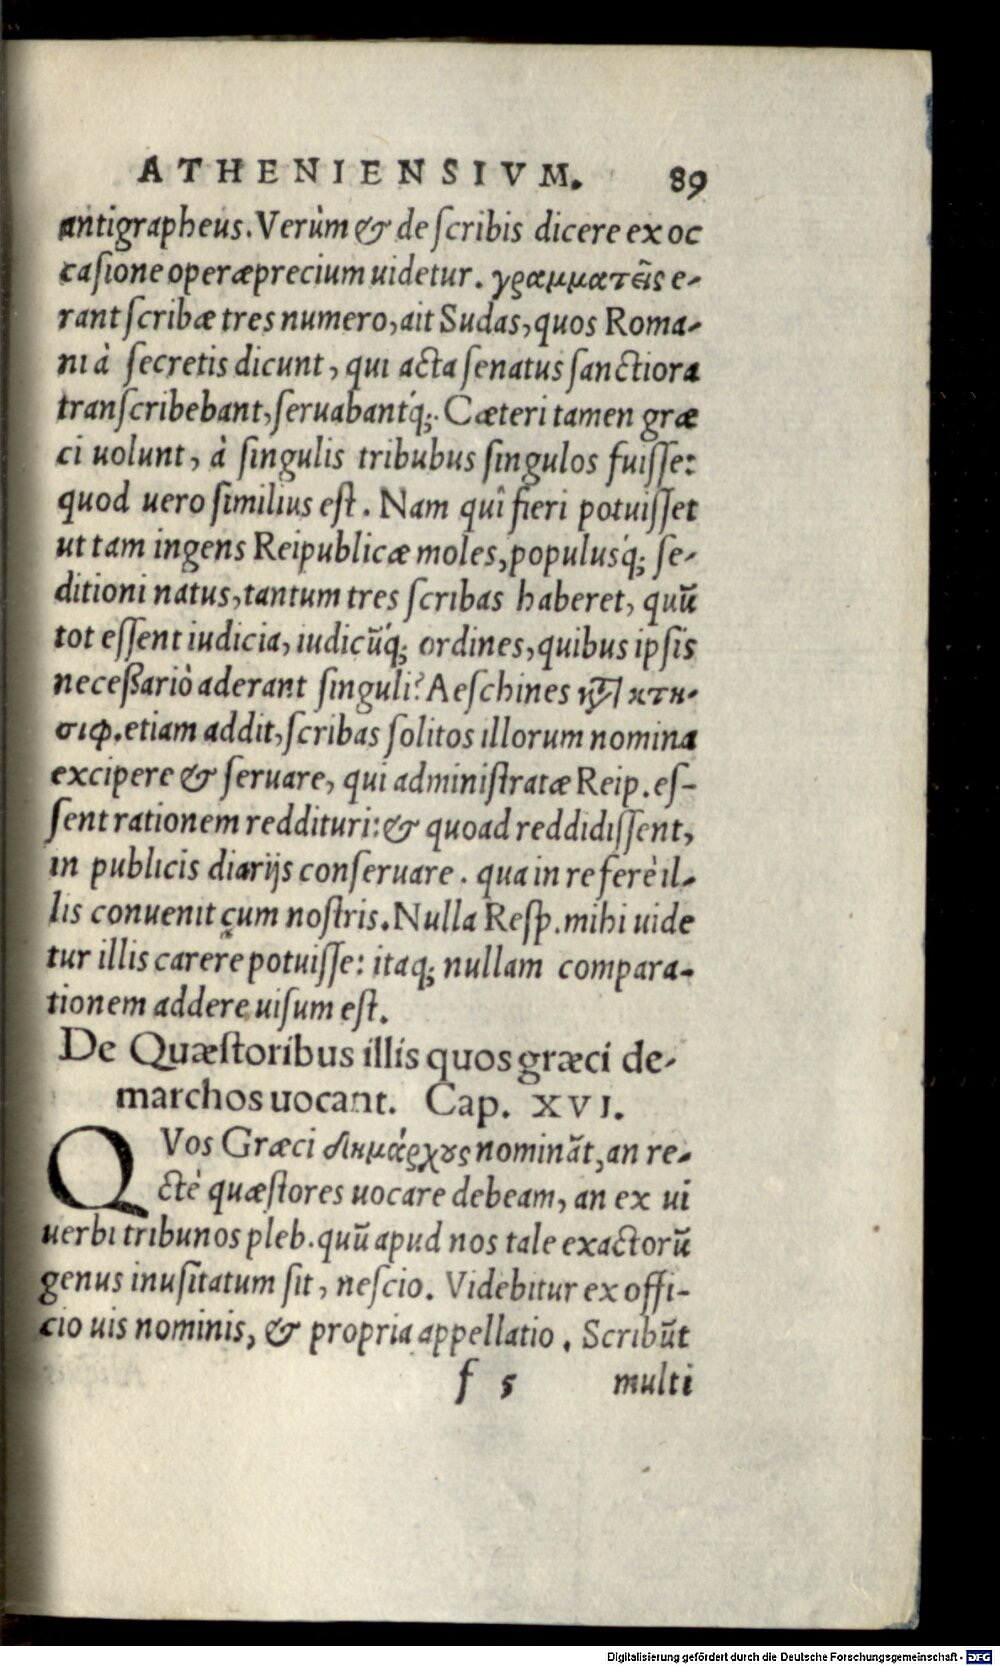 ATHENIENSIVM. 89
antigrapheus. Verùm & de ſcribis dicere ex oc
caſione operæprecium uidetur. γραμματεῖς e-
rant ſcribæ tres numero, ait Sudas, quos Roma-
ni à ſecretis dicunt, qui acta ſenatus ſanctiora
tranſcribebant, ſeruabantq́;. Cæteri tamen græ
ci uolunt, à ſingulis tribubus ſingulos fuiſſe:
quod uero ſimilius eſt. Nam quî fieri potuiſſet
ut tam ingens Reipublicæ moles, populusq́; ſe-
ditioni natus, tantum tres ſcribas haberet, quū
tot eſſent iudicia, iudicūq́; ordines, quibus ipſis
neceßariò aderant ſinguli? Aeſchines κτη-
σιφ. etiam addit, ſcribas ſolitos illorum nomina
excipere & ſeruare, qui adminiſtratæ Reip. eſ-
ſent rationem reddituri: & quoad reddidiſſent,
in publicis diarijs conſeruare. qua in re ferè il-
lis conuenit cum noſtris. Nulla Reſp. mihi uide
tur illis carere potuiſſe: itaq; nullam compara-
tionem addere uiſum eſt.
De Quæſtoribus illis quos græci de-
marchos uocant. Cap. XVI.
QVos Græci δημάρχους nomināt, an re-
ctè quæſtores uocare debeam, an ex ui
uerbi tribunos pleb. quū apud nos tale exactorū
genus inuſitatum ſit, neſcio. Videbitur ex offi-
cio uis nominis, & propria appellatio. Scribūt
f 5 multi
Digitalisierung gefördert durch die Deutsche Forschungsgemeinschaft - DFG